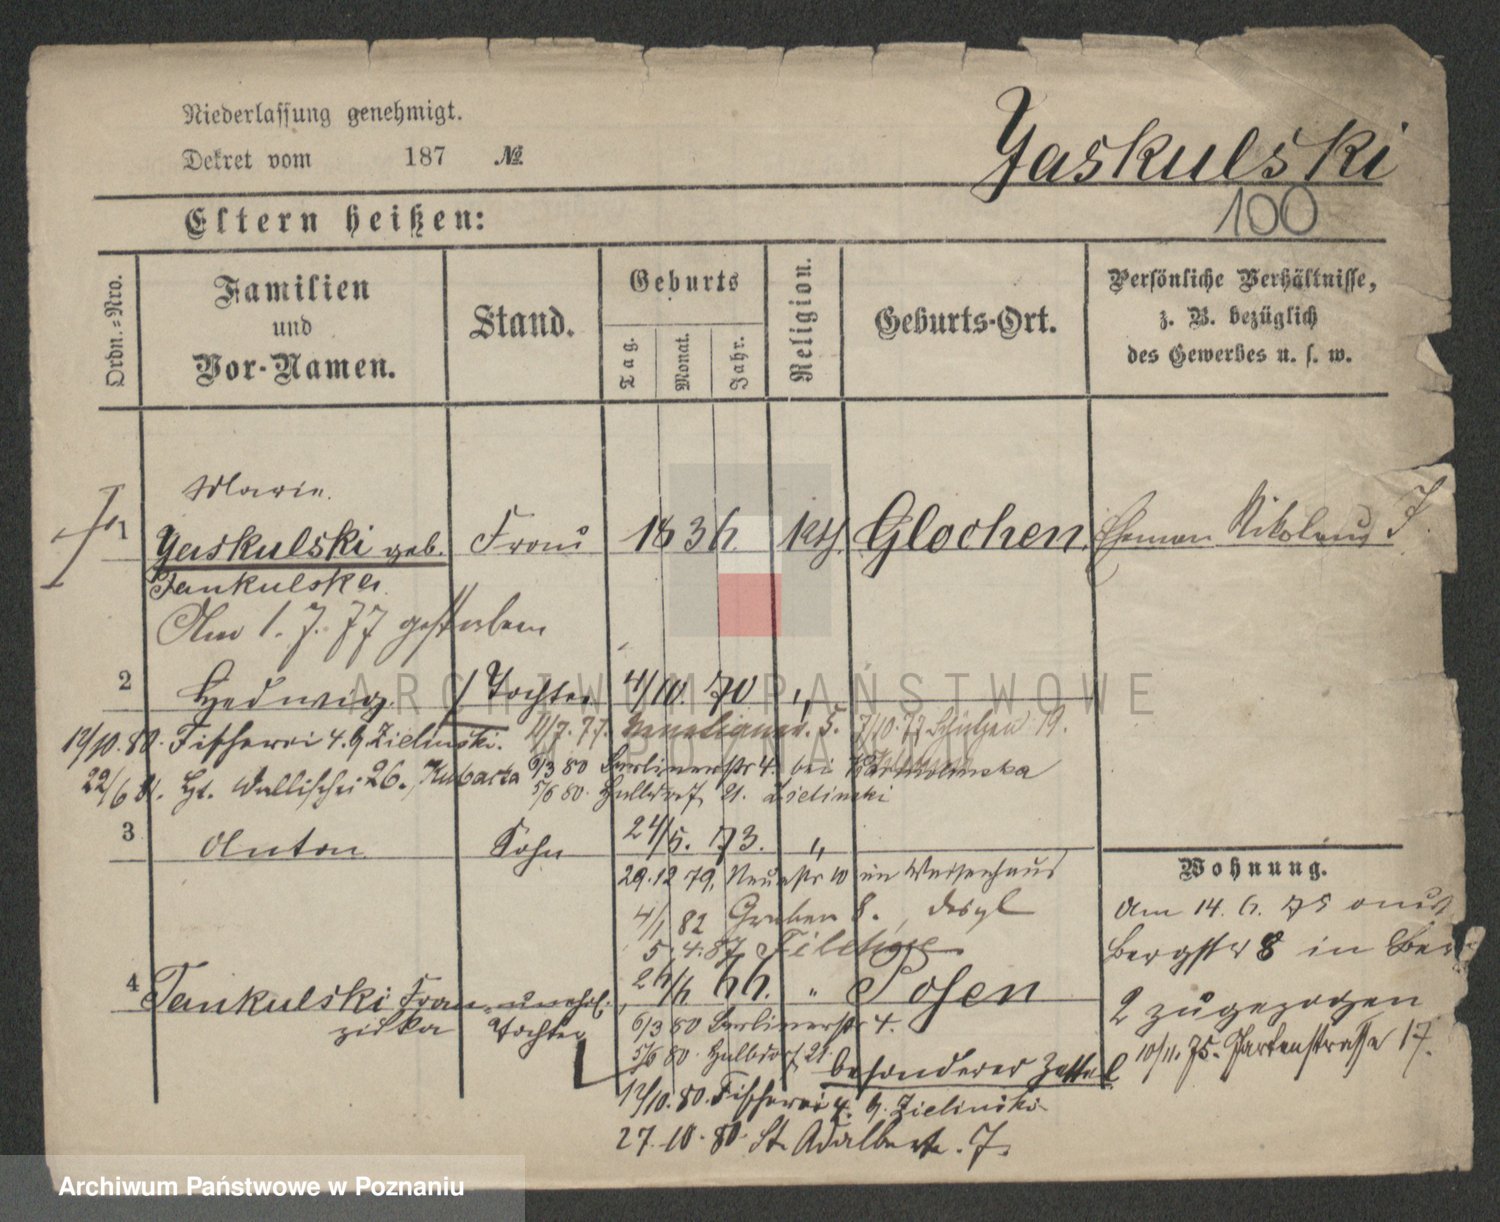 Niederlassung genehmigt.
Dekret vom 187 №
Jaskulski
100
Eltern heißen:
Ordn.-Nro.
Familien
und
Vor-Namen.
Stand.
Geburts
Tag.
Monat.
Jahr.
Religion.
Geburts-Ort.
Persönliche Verhältnisse,
z. B. bezüglich
des Gewerbes u. s. w.
Marie
1 Jaskulski geb. Frau 1836 kth Glochen Eheman Nikolaus J.
Jankulska
Am 1. 7. 77 gestorben
2 Hedwig Tochter 4/10. 70 "
19/10. 80. Fischerei 4. b Zielinski. 11/7. 77. Venetianer. 5. 7/10. 77 Schützen 19.
22/6 81. Wallischei 26. Kubacka 6/3 80 Berlinerstr 4. bei
5/6 80. Halbdorf 21. Zielinski
3 Anton Sohn 24/5. 73. "
29. 12 79. Neuestr 10 im Waisenhaus
4/1 82 Graben 8. desgl
5. 4. 87
Wohnung.
Am 14. 6. 75 aus
Bergstr 8 in
2 zugezogen
10/11. 75. Gartenstrasse 17.
4 Jankulski Fran- unehel. 26/6 66. " Posen
ziska Tochter 6/3 80 Berlinerstr 4.
5/6 80. Halbdorf 21.
besonderer Zettel
19/10. 80. Fischerei 4. b. Zielinski
27. 10. 80. St. Adalbertstr. 7.
ARCHIWUM PAŃSTWOWE
W POZNANIU
Archiwum Państwowe w Poznaniu